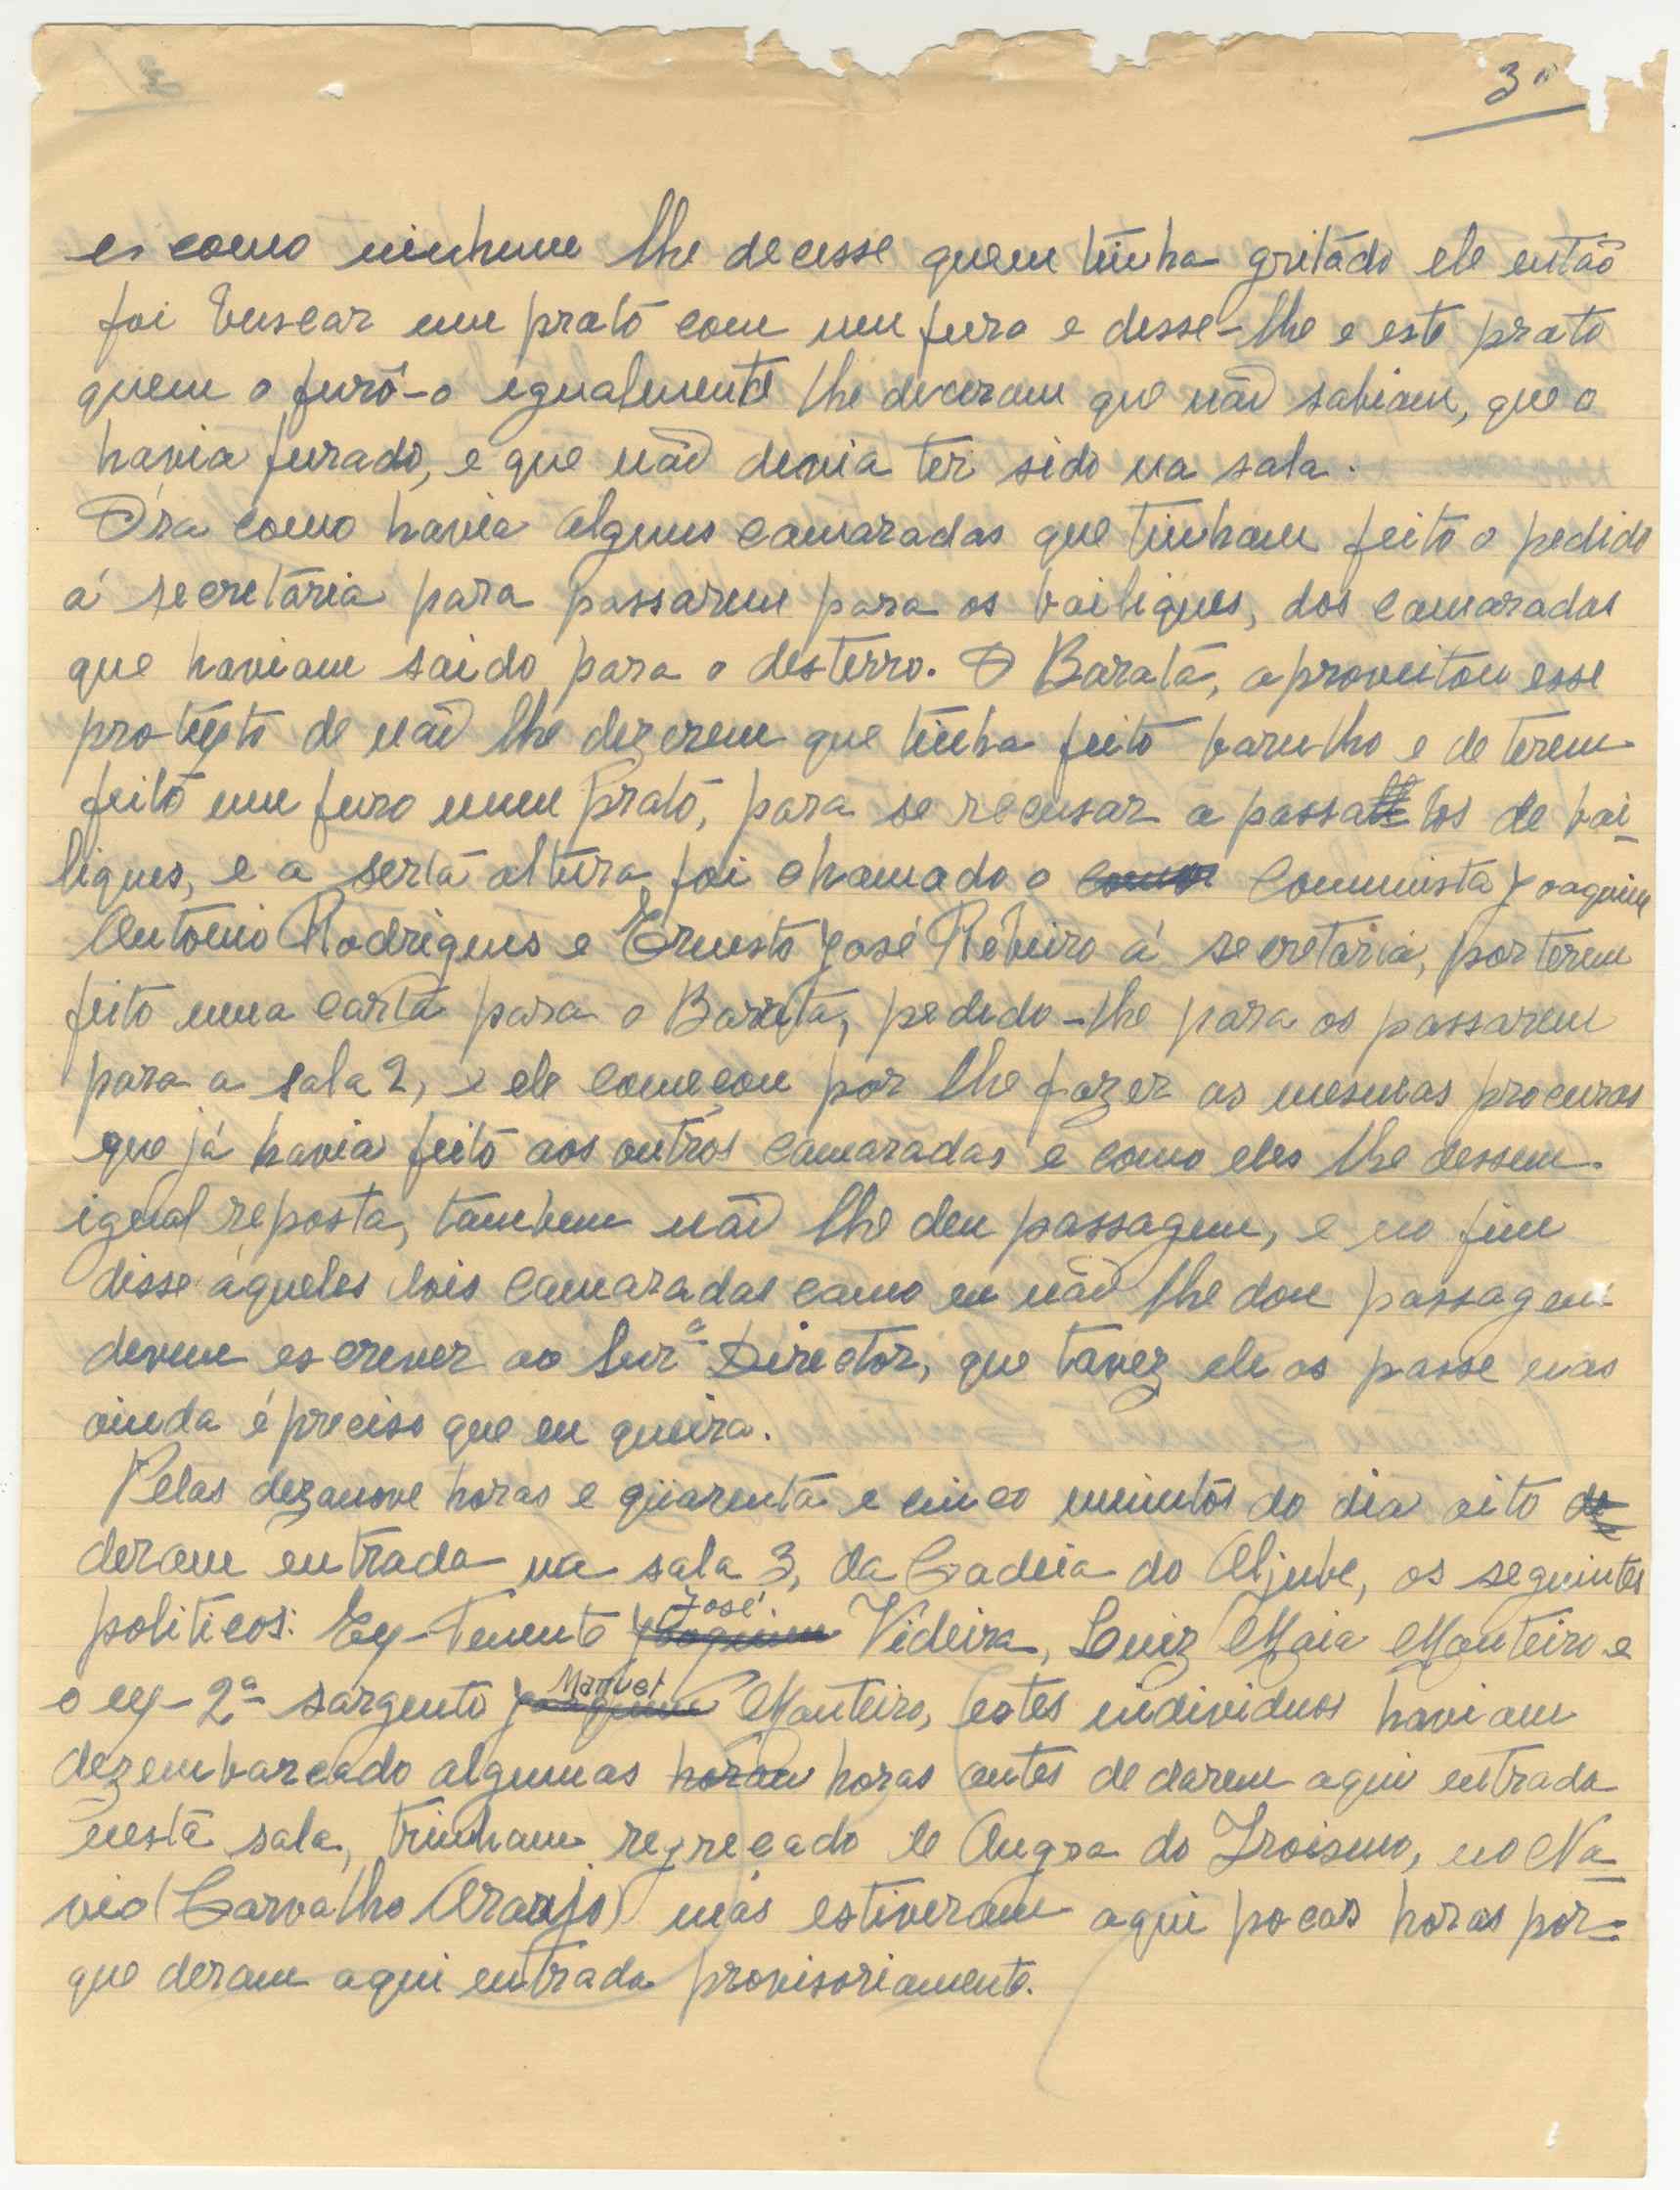 3º
e como ninhum lhe decesse quem tinha gritádo ele então
foi buscar um prato com um furo e desse-lhe e este prato
quem o furô-o egualmente lhe deceram que não sabiam, que o
havia furado, e que não devia ter sido na sala.
Óra como havia alguns camaradas que tinham feito o pedido
á secretária para passarem para os bailiques, dos camaradas
que haviam saido para o desterro. O Barata, aproveitou esse
protexto de não lhe dezerem que tinha feito barulho e de terem
feito um furo num Prato, para se recusar a passalos de bai-
liques, e a serta altura foi chamado o Communista Joaquim
Antonio Rodrigues e Ernesto José Ribeiro á secretaria, por terem
feito uma carta para o Barata, pedido-lhe para os passarem
para a sala 2, e ele começou por lhe fazer as mesmas procuras
que já havia feito aos outros camaradas e como eles lhe dessem
igual reposta, tambem não lhe deu passagem, e no fim
disse áqueles dois camaradas como eu não lhe dou passagem
devem escrever ao Snr.º Director, que tavez ele os passe mas
ainda é preciso que eu queira.
Pelas dezanove horas e quarenta e cinco minutos do dia oito de
deram entrada na sala 3, da Cadeia do Aljube, os seguintes
politicos: Ex-Tenente Joaquim José Videira, Luiz Maia Monteiro e
o ex-2º sargento Joaquim Manuel Monteiro, (estes individuos haviam
dezembarcado algumas horas antes de darem aqui entrada
nesta sala, trinham regreçado de Angra do Iroismo, no Na-
vio (Carvalho Araujo) más estiveram aqui pocas horas pór-
que deram aqui entrada provisoriamente.